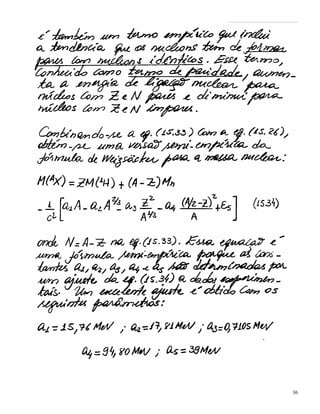 é também um termo empírico que inclui
a tendência que os nucleons têm de formar
pares com nucleons idênticos. Esse termo,
conhecido como termo de paridade, aumen-
ta a energia de ligação nuclear para
núcleos com Z e N pares e diminui para
núcleos com Z e N ímpares.
Combinando-se a eq. (15.33) com a eq. (15.26),
obtém-se uma versão semi-empírica da
fórmula de Weizsäcker para a massa nuclear:
M(ᴬX) = ZM(¹H) + (A-Z)Mn
- 1/c² [a₁A - a₂A^2/3 - a₃ Z²/A^1/3 - a₄ (A/2-Z)²/A + ε₅] (15.34)
onde N = A-Z na eq. (15.33). Essa equação é
uma fórmula semi-empírica porque as cons-
tantes a₁, a₂, a₃, a₄ e a₅ são determinadas por
um ajuste da eq. (15.34) a dados experimen-
tais. Um excelente ajuste é obtido com os
seguintes parâmetros:
a₁ = 15,76 MeV ; a₂ = 17,81 MeV ; a₃ = 0,7105 MeV
a₄ = 94,80 MeV ; a₅ = 39 MeV
56